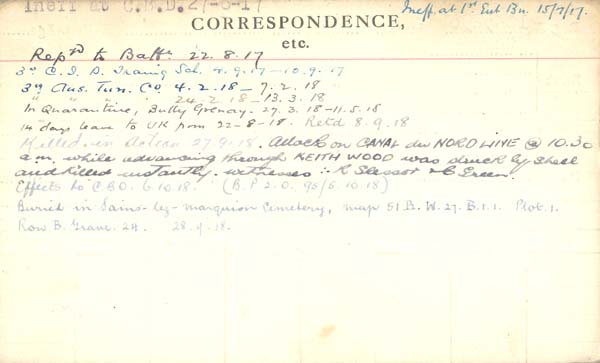 Ineff at C.B.D. 27-6-17
Ineff. at 1st Ent Bn. 15/7/17.
CORRESPONDENCE,
etc.
Rep'd to Battn. 22.8.17
3rd C.I.D. Traing Sch. 2.9.17-10.9.17
3rd Aus. Tun. Co. 4.2.18 - 7.2.18
" " " " 24.2.18-13.3.18
In Quarantine, Bully Grenay. 27.3.18-11.5.18
14 days leave to UK from 22-8-18. Retd 8.9.18
Killed in Action 27.9.18. Attack on CANAL du NORD LINE @ 10.30
a.m. while advancing through KEITH WOOD was struck by shell
and killed instantly. witnesses :- R Slessor & C Green.
Effects to C.B.O. 6.10.18. (B.P 2.0. 95/5.10.18)
Buried in Sains-lez-marquion Cemetery, map 51 B. W. 27. B.1.1. Plot. 1.
Row B. Grave. 24. 28.9.18.